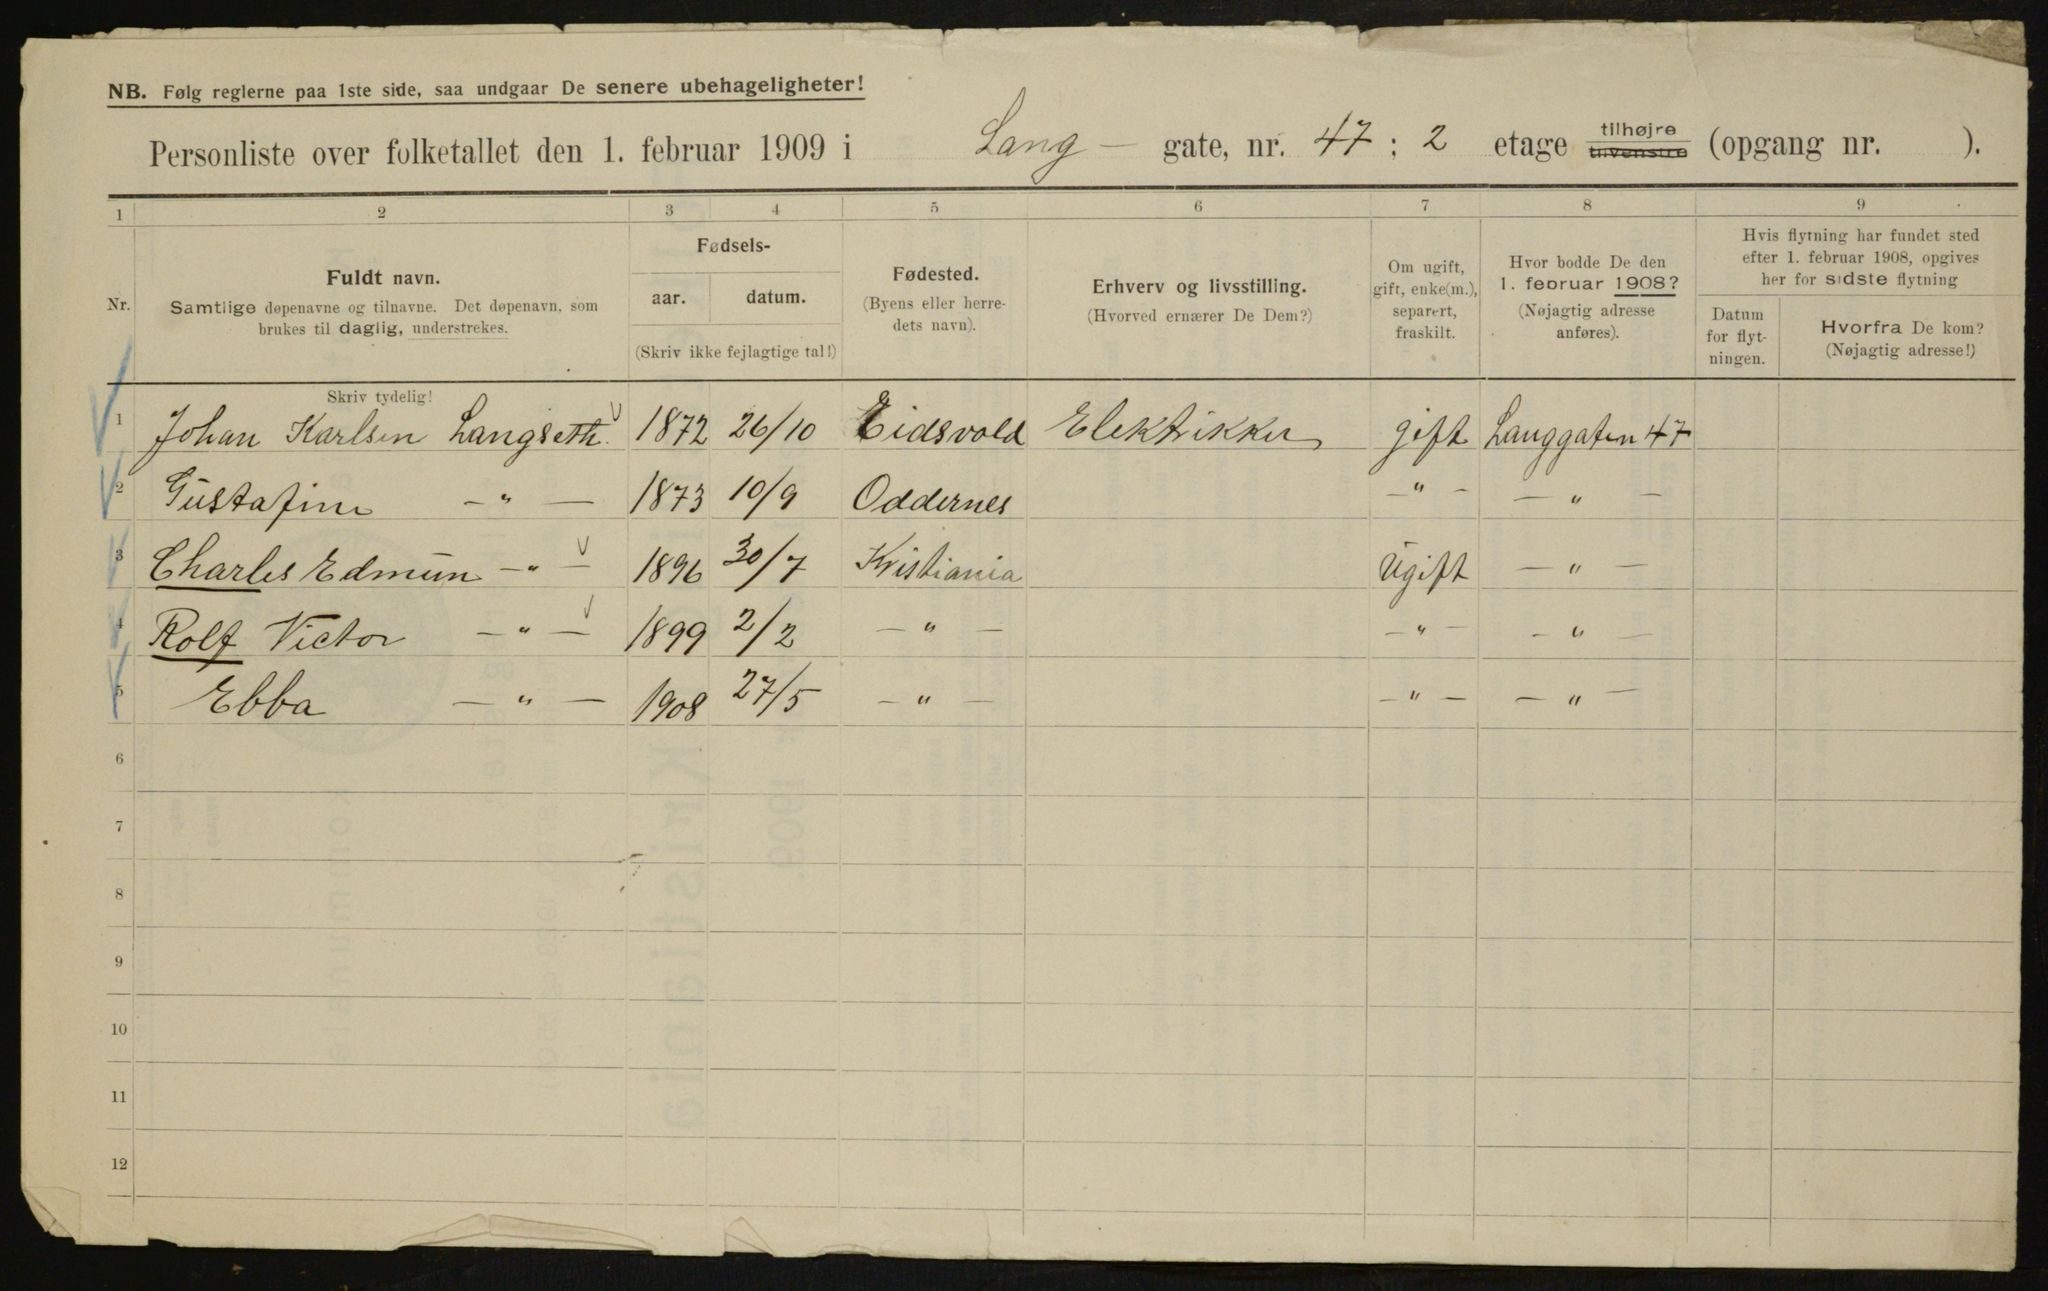 NB. Følg reglerne paa 1ste side, saa undgaar De senere ubehageligheter!
Personliste over folketallet den 1. februar 1909 i Lang — gate, nr. 47 ; 2 etage tilhøjre tilvenstre (opgang nr. ).
1 2 3 4 5 6 7 8 9
Nr.
Fuldt navn.
Samtlige døpenavne og tilnavne. Det døpenavn, som
brukes til daglig, understrekes.
Fødsels-
aar. datum.
(Skriv ikke fejlagtige tal!)
Fødested.
(Byens eller herre-
dets navn).
Erhverv og livsstilling.
(Hvorved ernærer De Dem?)
Om ugift,
gift, enke(m.),
separert,
fraskilt.
Hvor bodde De den
1. februar 1908?
(Nøjagtig adresse
anføres).
Hvis flytning har fundet sted
efter 1. februar 1908, opgives
her for sidste flytning
Datum
for flyt-
ningen.
Hvorfra De kom?
(Nøjagtig adresse!)
Skriv tydelig!
1 Johan Karlsen Langseth. 1872 26/10 Eidsvold Elektrikker gift Langgaten 47
2 Gustafine — " — 1873 10/9 Oddernes — " — — " —
3 Charles Edmun — " — 1896 30/7 Kristiania Ugift — " —
4 Rolf Victor — " — 1899 2/2 — " — — " — — " —
5 Ebba — " — 1908 27/5 — " — — " — — " —
6
7
8
9
10
11
12